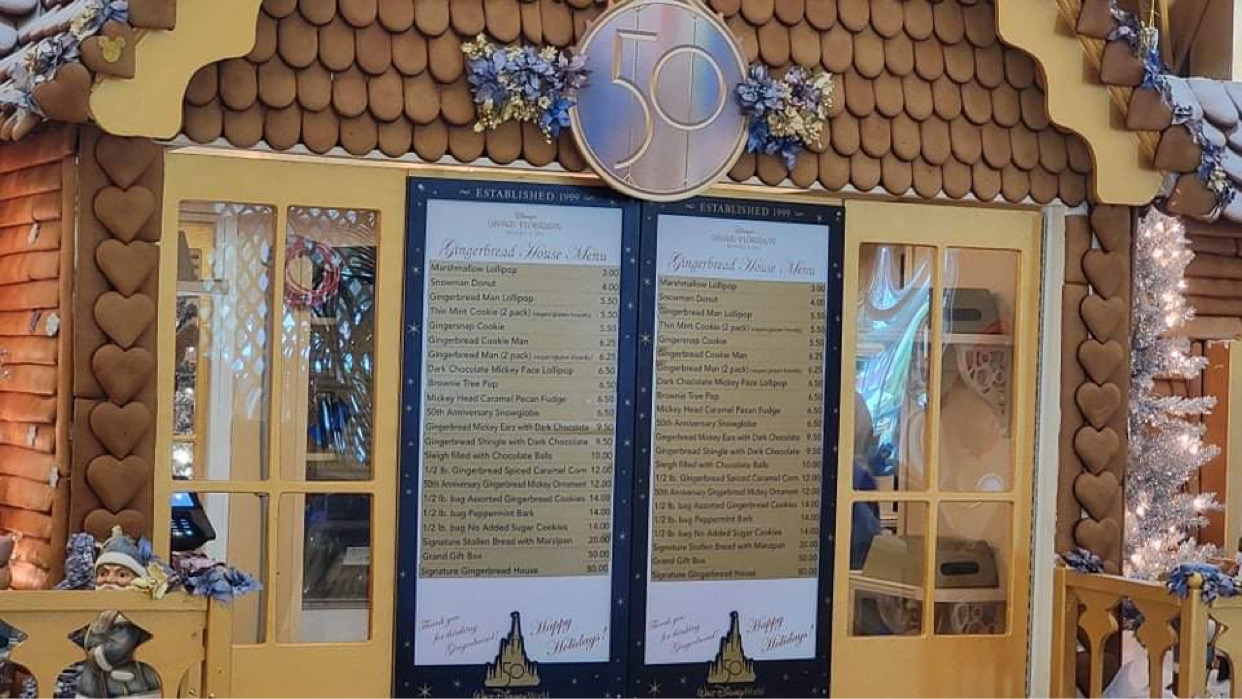 50
ESTABLISHED 1999
Disney's
GRAND FLORIDIAN
Gingerbread House Menu
Marshmallow Lollipop 3.00
Snowman Donut 4.00
Gingerbread Man Lollipop 5.50
Thin Mint Cookie (2 pack) (vegan/gluten friendly) 5.50
Gingersnap Cookie 5.50
Gingerbread Cookie Man 6.25
Gingerbread Man (2 pack) (vegan/gluten friendly) 6.25
Dark Chocolate Mickey Face Lollipop 6.50
Brownie Tree Pop 6.50
Mickey Head Caramel Pecan Fudge 6.50
50th Anniversary Snowglobe 6.50
Gingerbread Mickey Ears with Dark Chocolate 9.50
Gingerbread Shingle with Dark Chocolate 9.50
Sleigh filled with Chocolate Balls 10.00
1/2 lb. Gingerbread Spiced Caramel Corn 12.00
50th Anniversary Gingerbread Mickey Ornament 12.00
1/2 lb. bag Assorted Gingerbread Cookies 14.00
1/2 lb. bag Peppermint Bark 14.00
1/2 lb. bag No Added Sugar Cookies 14.00
Signature Stollen Bread with Marzipan 20.00
Grand Gift Box 50.00
Signature Gingerbread House 80.00
Thank you
for thinking
Gingerbread!
Happy
Holidays!
50
Walt Disney World
ESTABLISHED 1999
Disney's
GRAND FLORIDIAN
Gingerbread House Menu
Marshmallow Lollipop 3.00
Snowman Donut 4.00
Gingerbread Man Lollipop 5.50
Thin Mint Cookie (2 pack) (vegan/gluten friendly) 5.50
Gingersnap Cookie 5.50
Gingerbread Cookie Man 6.25
Gingerbread Man (2 pack) (vegan/gluten friendly) 6.25
Dark Chocolate Mickey Face Lollipop 6.50
Brownie Tree Pop 6.50
Mickey Head Caramel Pecan Fudge 6.50
50th Anniversary Snowglobe 6.50
Gingerbread Mickey Ears with Dark Chocolate 9.50
Gingerbread Shingle with Dark Chocolate 9.50
Sleigh filled with Chocolate Balls 10.00
1/2 lb. Gingerbread Spiced Caramel Corn 12.00
50th Anniversary Gingerbread Mickey Ornament 12.00
1/2 lb. bag Assorted Gingerbread Cookies 14.00
1/2 lb. bag Peppermint Bark 14.00
1/2 lb. bag No Added Sugar Cookies 14.00
Signature Stollen Bread with Marzipan 20.00
Grand Gift Box 50.00
Signature Gingerbread House 80.00
Thank you
for thinking
Gingerbread!
Happy
Holidays!
50
Walt Disney World